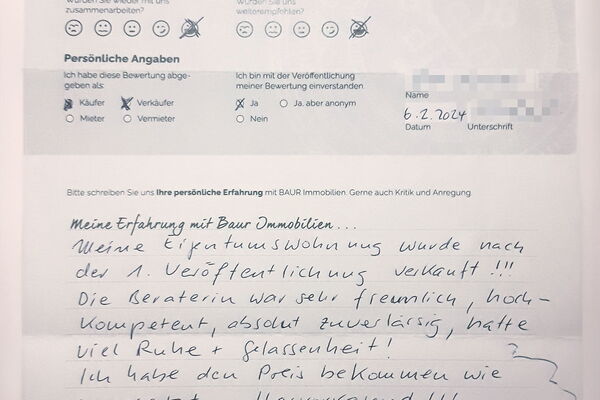 Würden Sie wieder mit uns
zusammenarbeiten?
Würden Sie uns
weiterempfehlen?
Persönliche Angaben
Ich habe diese Bewertung abge-
geben als:
Käufer Verkäufer
Mieter Vermieter
Ich bin mit der Veröffentlichung
meiner Bewertung einverstanden.
Ja Ja, aber anonym
Nein
Name
6.2.2024
Datum Unterschrift
Bitte schreiben Sie uns Ihre persönliche Erfahrung mit BAUR Immobilien: Gerne auch Kritik und Anregung.
Meine Erfahrung mit Baur Immobilien...
Meine Eigentumswohnung wurde nach
der 1. Veröffentlichung verkauft!!!
Die Beraterin war sehr freundlich, hoch-
kompetent, absolut zuverlässig, hatte
viel Ruhe + Gelassenheit!
Ich habe den Preis bekommen wie